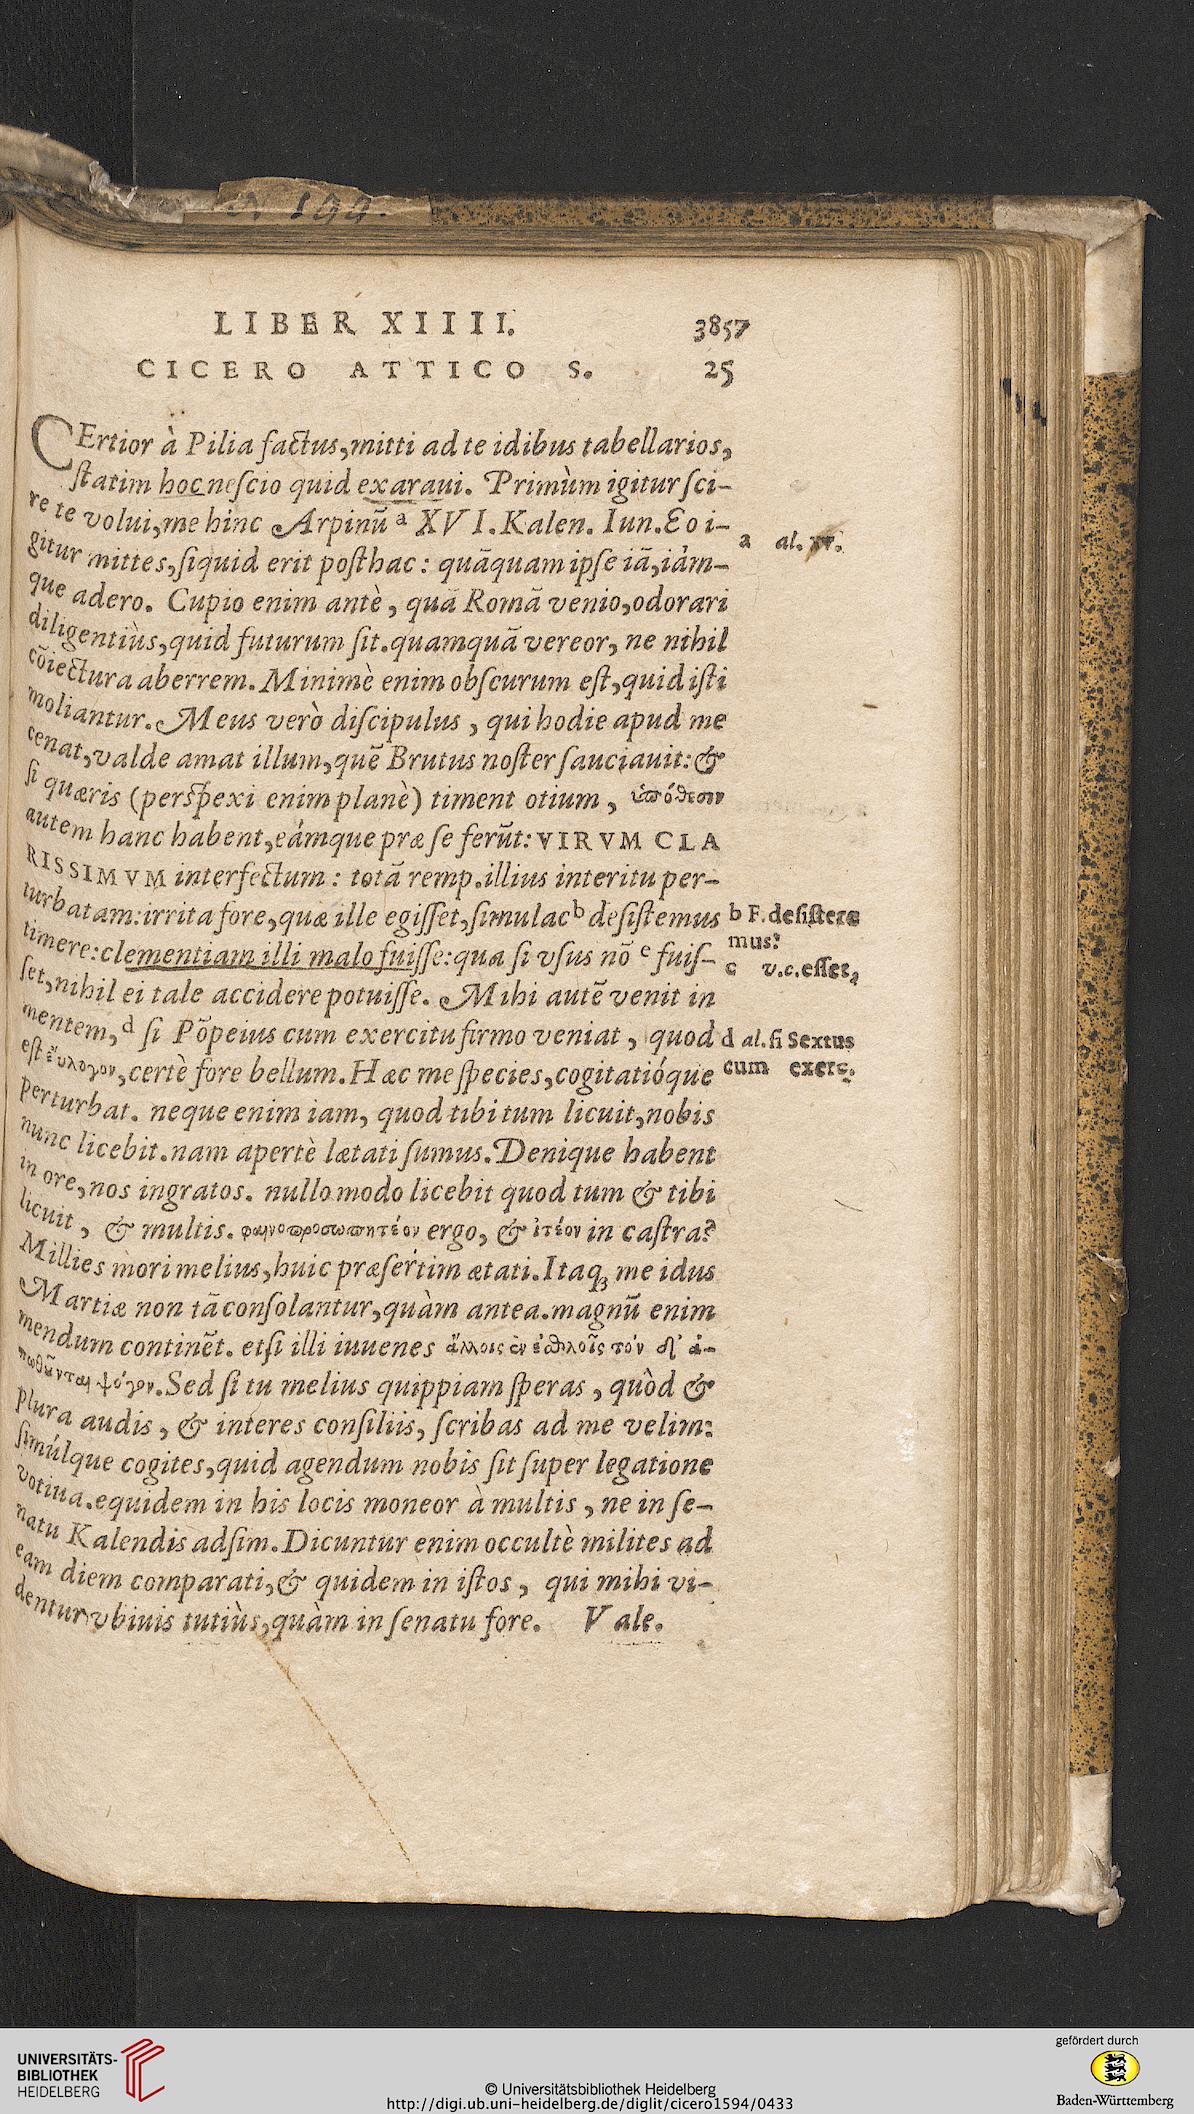 N. 199.
LIBER XIIII. 3857
CICERO ATTICO S. 25
CErtior à Pilia factus, mitti ad te idibus tabellarios,
ſtatim hoc neſcio quid exaraui. Primùm igitur ſci-
re te volui, me hinc Arpinũ ᵃ XVI. Kalen. Iun. Eo i-
gitur mittes, ſiquid erit poſthac: quãquam ipſe iã, iám-
a al. xv.
que adero. Cupio enim antè, quã Romã venio, odorari
diligentiùs, quid futurum ſit. quamquã vereor, ne nihil
cõiectura aberrem. Minimè enim obſcurum eſt, quid iſti
moliantur. Meus verò diſcipulus, qui hodie apud me
cenat, valde amat illum, quẽ Brutus noſter ſauciauit: &
ſi quæris (perſpexi enim planè) timent otium, ὑπόθεσιν
autem hanc habent, eámque præ ſe ferũt: VIRVM CLA
RISSIMVM interfectum: totã remp. illius interitu per-
turbatam: irrita fore, quæ ille egiſſet, ſimulac ᵇ deſiſtemus
b F. deſiſtere
mus?
timere: clementiam illi malo fuiſſe: qua ſi vſus nõ ᶜ fuiſ-
c v.c. eſſet,
ſet, nihil ei tale accidere potuiſſe. Mihi autẽ venit in
mentem, ᵈ ſi Põpeius cum exercitu firmo veniat, quod
d al. ſi Sextus
cum exerc.
eſt εὔλογον, certè fore bellum. Hæc me ſpecies, cogitatióque
perturbat. neque enim iam, quod tibi tum licuit, nobis
nunc licebit. nam apertè lætati ſumus. Denique habent
in ore, nos ingratos. nullo modo licebit quod tum & tibi
licuit, & multis. φαινοπροσωπητέον ergo, & ἰτέον in caſtra?
Millies mori melius, huic præſertim ætati. Itaq; me idus
Martiæ non tã conſolantur, quàm antea. magnũ enim
mendum continẽt. etſi illi iuuenes ἄλλοις ἐν ἐσθλοῖς τόν δ' ἀ-
πωθοῦνται ψόγον. Sed ſi tu melius quippiam ſperas, quòd &
plura audis, & interes conſiliis, ſcribas ad me velim:
ſimúlque cogites, quid agendum nobis ſit ſuper legatione
votiua. equidem in his locis moneor à multis, ne in ſe-
natu Kalendis adſim. Dicuntur enim occultè milites ad
eam diem comparati, & quidem in iſtos, qui mihi vi-
dentur vbiuis tutiùs, quàm in ſenatu fore. Vale.
UNIVERSITÄTS-
BIBLIOTHEK
HEIDELBERG
© Universitätsbibliothek Heidelberg
http://digi.ub.uni-heidelberg.de/diglit/cicero1594/0433
gefördert durch
Baden-Württemberg